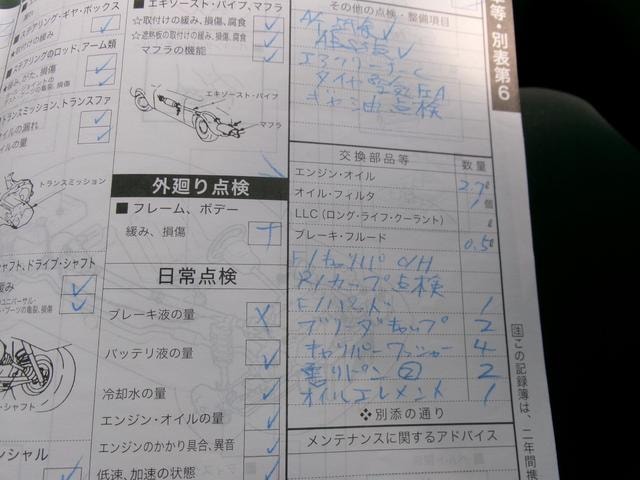 ステアリング・ギヤ・ボックス
取付けの緩み
ステアリングのロッド、アーム類
緩み、がた、損傷
トランスミッション、トランスファ
オイルの漏れ
オイルの量
トランスミッション
シャフト、ドライブ・シャフト
緩み
ユニバーサル・
ブーツの亀裂、損傷
・シャフト
■ エキゾースト・パイプ、マフラ
☆取付けの緩み、損傷、腐食
☆遮熱板の取付けの緩み、損傷、腐食
マフラの機能
エキゾースト・パイプ
マフラ
外廻り点検
■ フレーム、ボデー
緩み、損傷
日常点検
ブレーキ液の量
バッテリ液の量
冷却水の量
エンジン・オイルの量
エンジンのかかり具合、異音
低速、加速の状態
その他の点検・整備項目
エアクリーナーC
タイヤ空気圧A
ギヤ油点検
交換部品等 数量
エンジン・オイル 2.7ℓ
オイル・フィルタ 個
LLC(ロング・ライフ・クーラント) ℓ
ブレーキ・フルード 0.5ℓ
F/キャリパ O/H
R/カップ点検
F/パッド 1
ブリーダキャップ 2
キャリパーワッシャー 4
割リピン ② 2
オイルエレメント 1
❖別添の通り
メンテナンスに関するアドバイス
等・別表第6
注 この記録簿は、二年間携